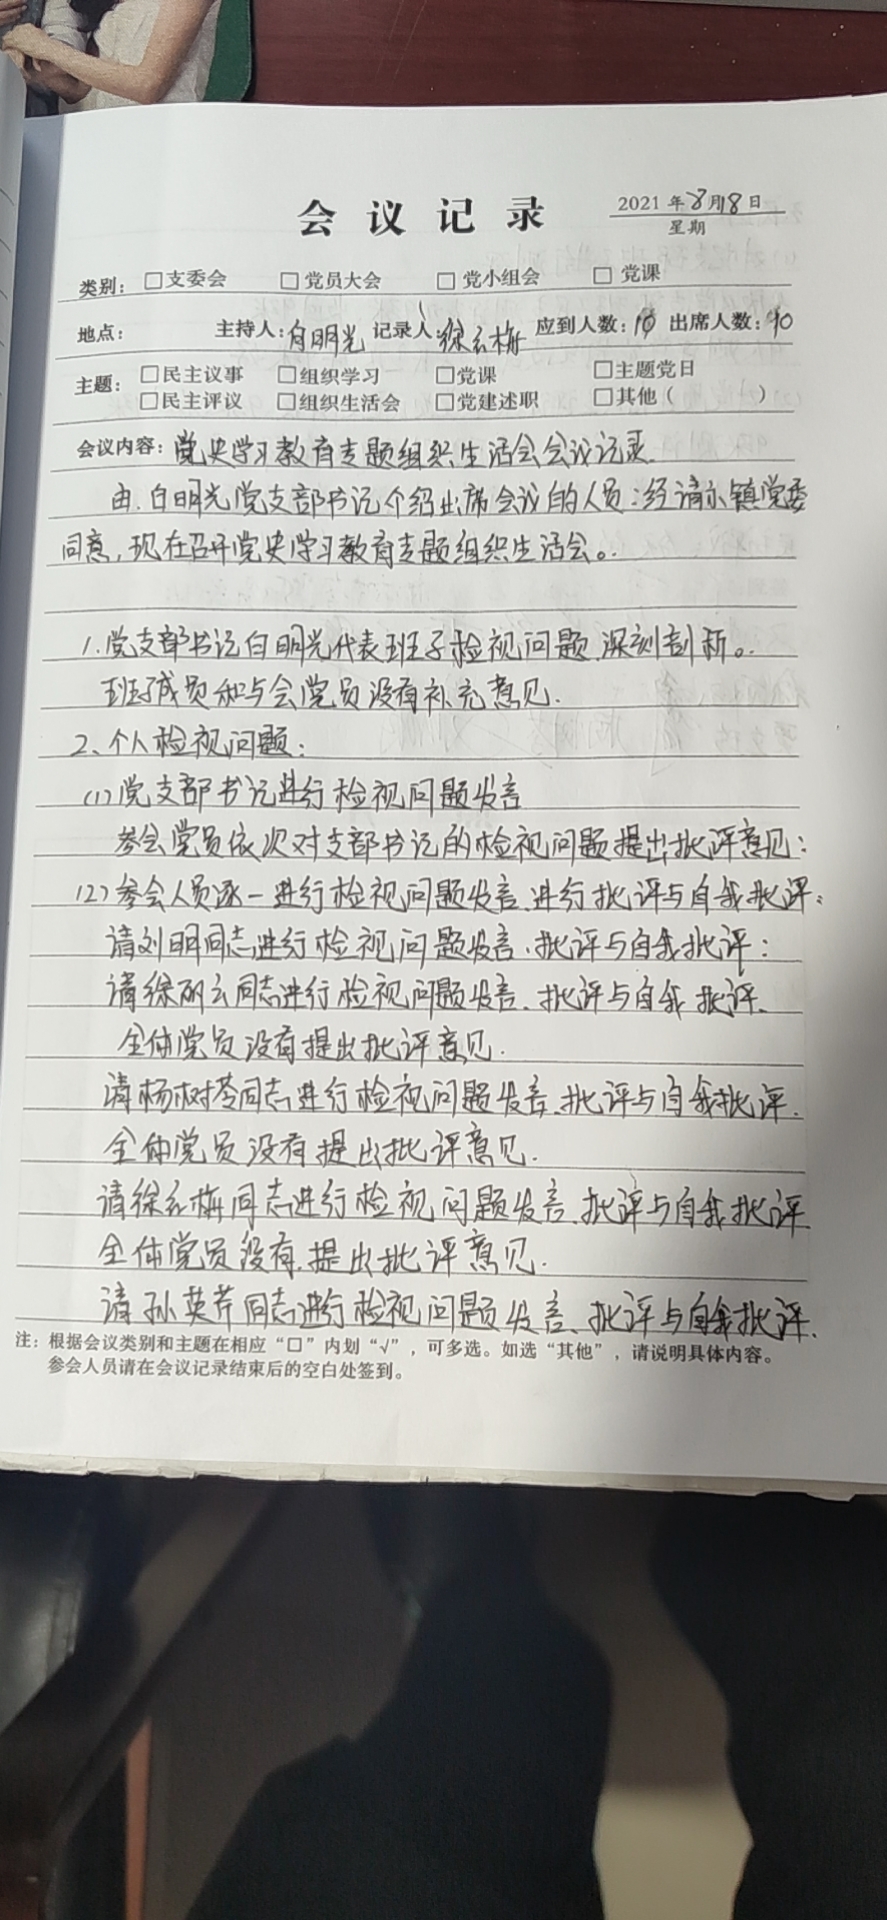 会议记录
2021年8月18日
星期
类别：□支委会 □党员大会 □党小组会 □党课
地点： 主持人：白明光 记录人：徐云梅 应到人数：10 出席人数：10
主题：□民主议事 □组织学习 □党课 □主题党日
□民主评议 □组织生活会 □党建述职 □其他（ ）
会议内容：党史学习教育专题组织生活会会议记录.
由.白明光党支部书记介绍出席会议的人员：经请示镇党委
同意,现在召开党史学习教育专题组织生活会。.
1.党支部书记白明光代表班子检视问题、深刻剖析。.
班子成员和与会党员没有补充意见.
2、个人检视问题：
(1)党支部书记进行检视问题发言
参会党员依次对支部书记的检视问题提出批评意见：
(2)参会人员逐一进行检视问题发言、进行批评与自我批评：
请刘明同志进行检视问题发言、批评与自我批评：
请徐丽云同志进行检视问题发言、批评与自我批评、
全体党员没有提出批评意见.
请杨树苓同志进行检视问题发言、批评与自我批评.
全体党员没有提出批评意见.
请徐云梅同志进行检视问题发言、批评与自我批评.
全体党员没有提出批评意见.
请孙英芹同志进行检视问题发言、批评与自我批评.
注：根据会议类别和主题在相应“□”内划“√”，可多选。如选“其他”，请说明具体内容。
参会人员请在会议记录结束后的空白处签到。